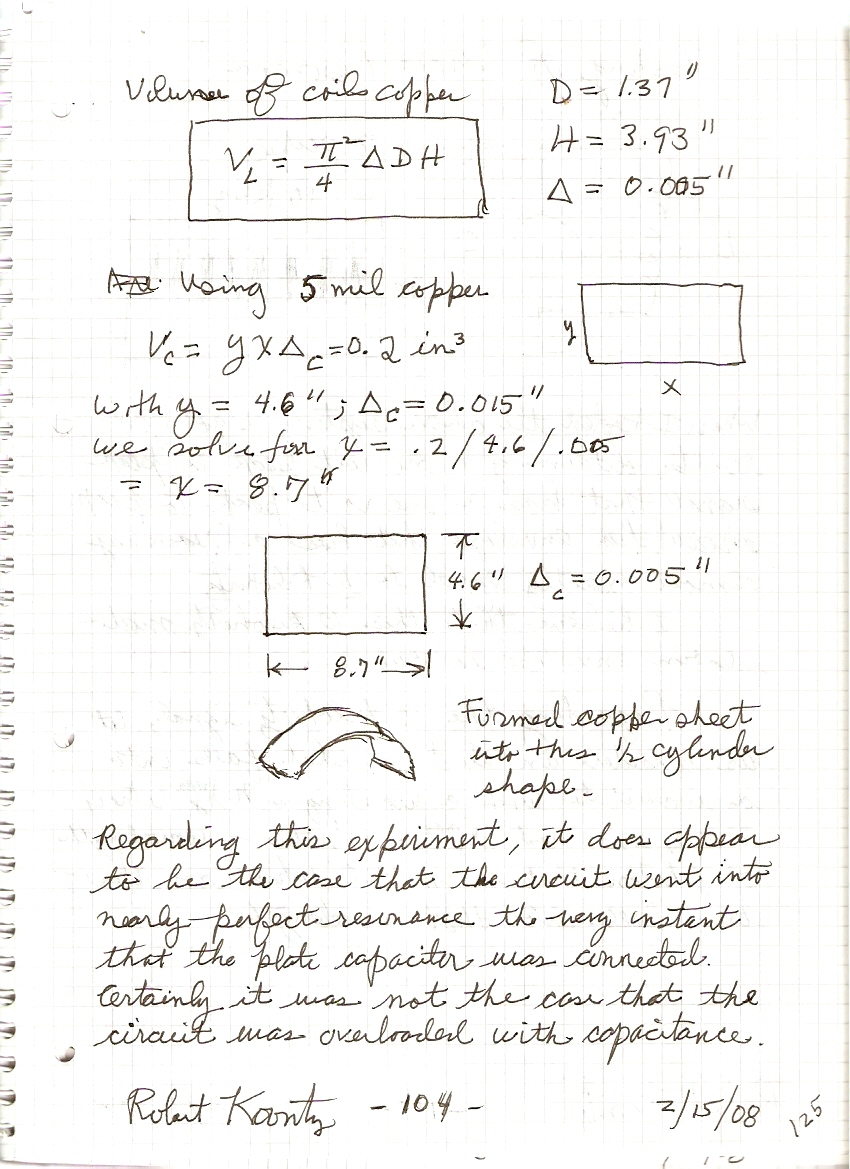 Volume of coils copper
D = 1.37"
V_L = π²/4 Δ D H
H = 3.93"
Δ = 0.005"
Using 5 mil copper
V_c = y x Δ_c = 0.2 in³
y
x
with y = 4.6" ; Δ_c = 0.015"
we solve for x = .2/4.6/.005
= x = 8.7"
4.6" Δ_c = 0.005"
8.7"
Formed copper sheet
into this ½ cylinder
shape.
Regarding this experiment, it does appear
to be the case that the circuit went into
nearly-perfect resonance the very instant
that the plate capacitor was connected.
Certainly it was not the case that the
circuit was overloaded with capacitance.
Robert Koontz - 104 - 2/15/08 125